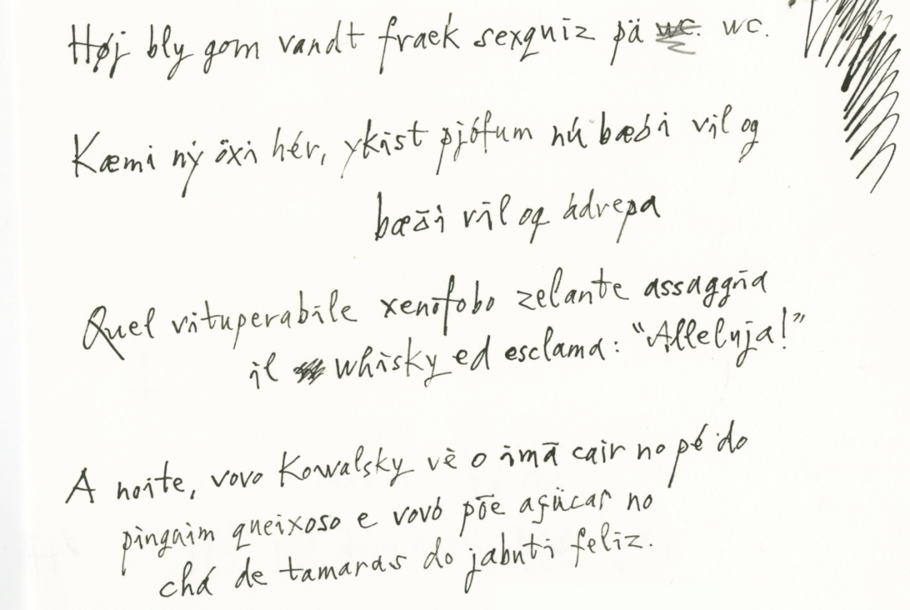 Høj bly gom vandt fraek sexquiz pä wc.
Kæmi ný öxi hér, ykist þjófum nú bæði víl og
bæði víl og ádrepa
Quel vituperabile xenofobo zelante assaggia
il whisky ed esclama: "Alleluja!"
A noite, vovo Kowalsky vè o imã cair no pé do
pinguim queixoso e vovó põe açúcar no
chá de tamaras do jabuti feliz.